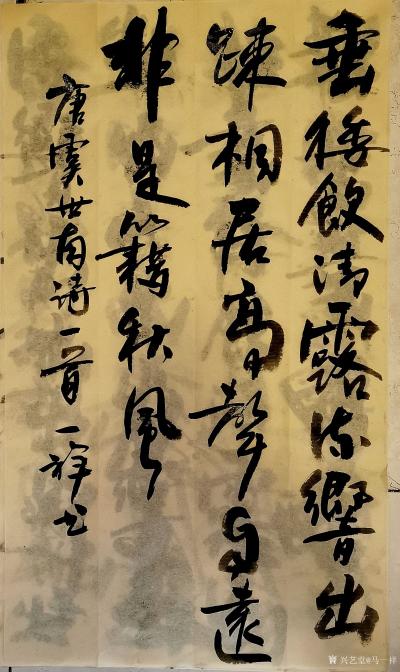 垂緌飲清露流響出
踈桐居高聲自遠
非是籍秋風
唐虞世南詩一首 一祥书
兴艺堂@马一祥